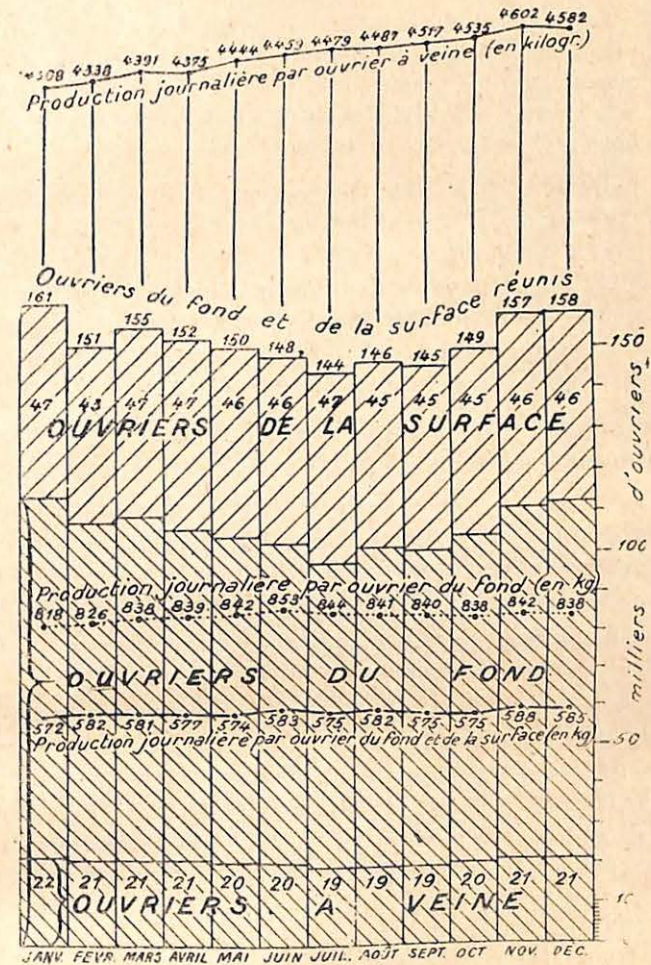 4308 4338 4391 4375 4444 4459 4479 4487 4517 4535 4602 4582
Production journalière par ouvrier à veine (en kilogr.)
Ouvriers du fond et de la surface réunis
161 151 155 152 150 148 144 146 145 149 157 158
150
47 43 47 47 46 46 47 45 45 45 46 46
OUVRIERS DE LA SURFACE
d'ouvriers
100
Production journalière par ouvrier du fond (en kg)
818 826 838 839 842 853 844 841 840 838 842 838
milliers
OUVRIERS DU FOND
572 582 581 577 574 583 575 582 575 575 588 585
Production journalière par ouvrier du fond et de la surface (en kg)
50
22 21 21 21 20 20 19 19 19 20 21 21
OUVRIERS A VEINE
10
JANV. FEVR. MARS AVRIL MAI JUIN JUIL. AOÛT SEPT. OCT NOV. DEC.